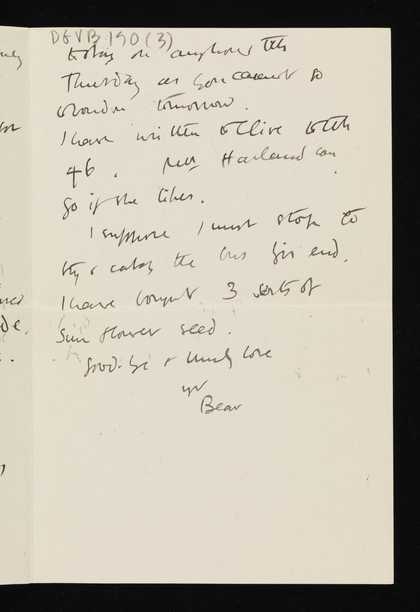 DGVB 190 (3)
to stay on anyhow till
Thursday as you cannot to
London tomorrow.
I have written to Clive to
46. Mrs Harland can
go if she likes.
I suppose I must stop to
try & catch the bus
I have bought 3 sorts of
Sun flower seed.
Good-bye & much love
yr
Bear
de.